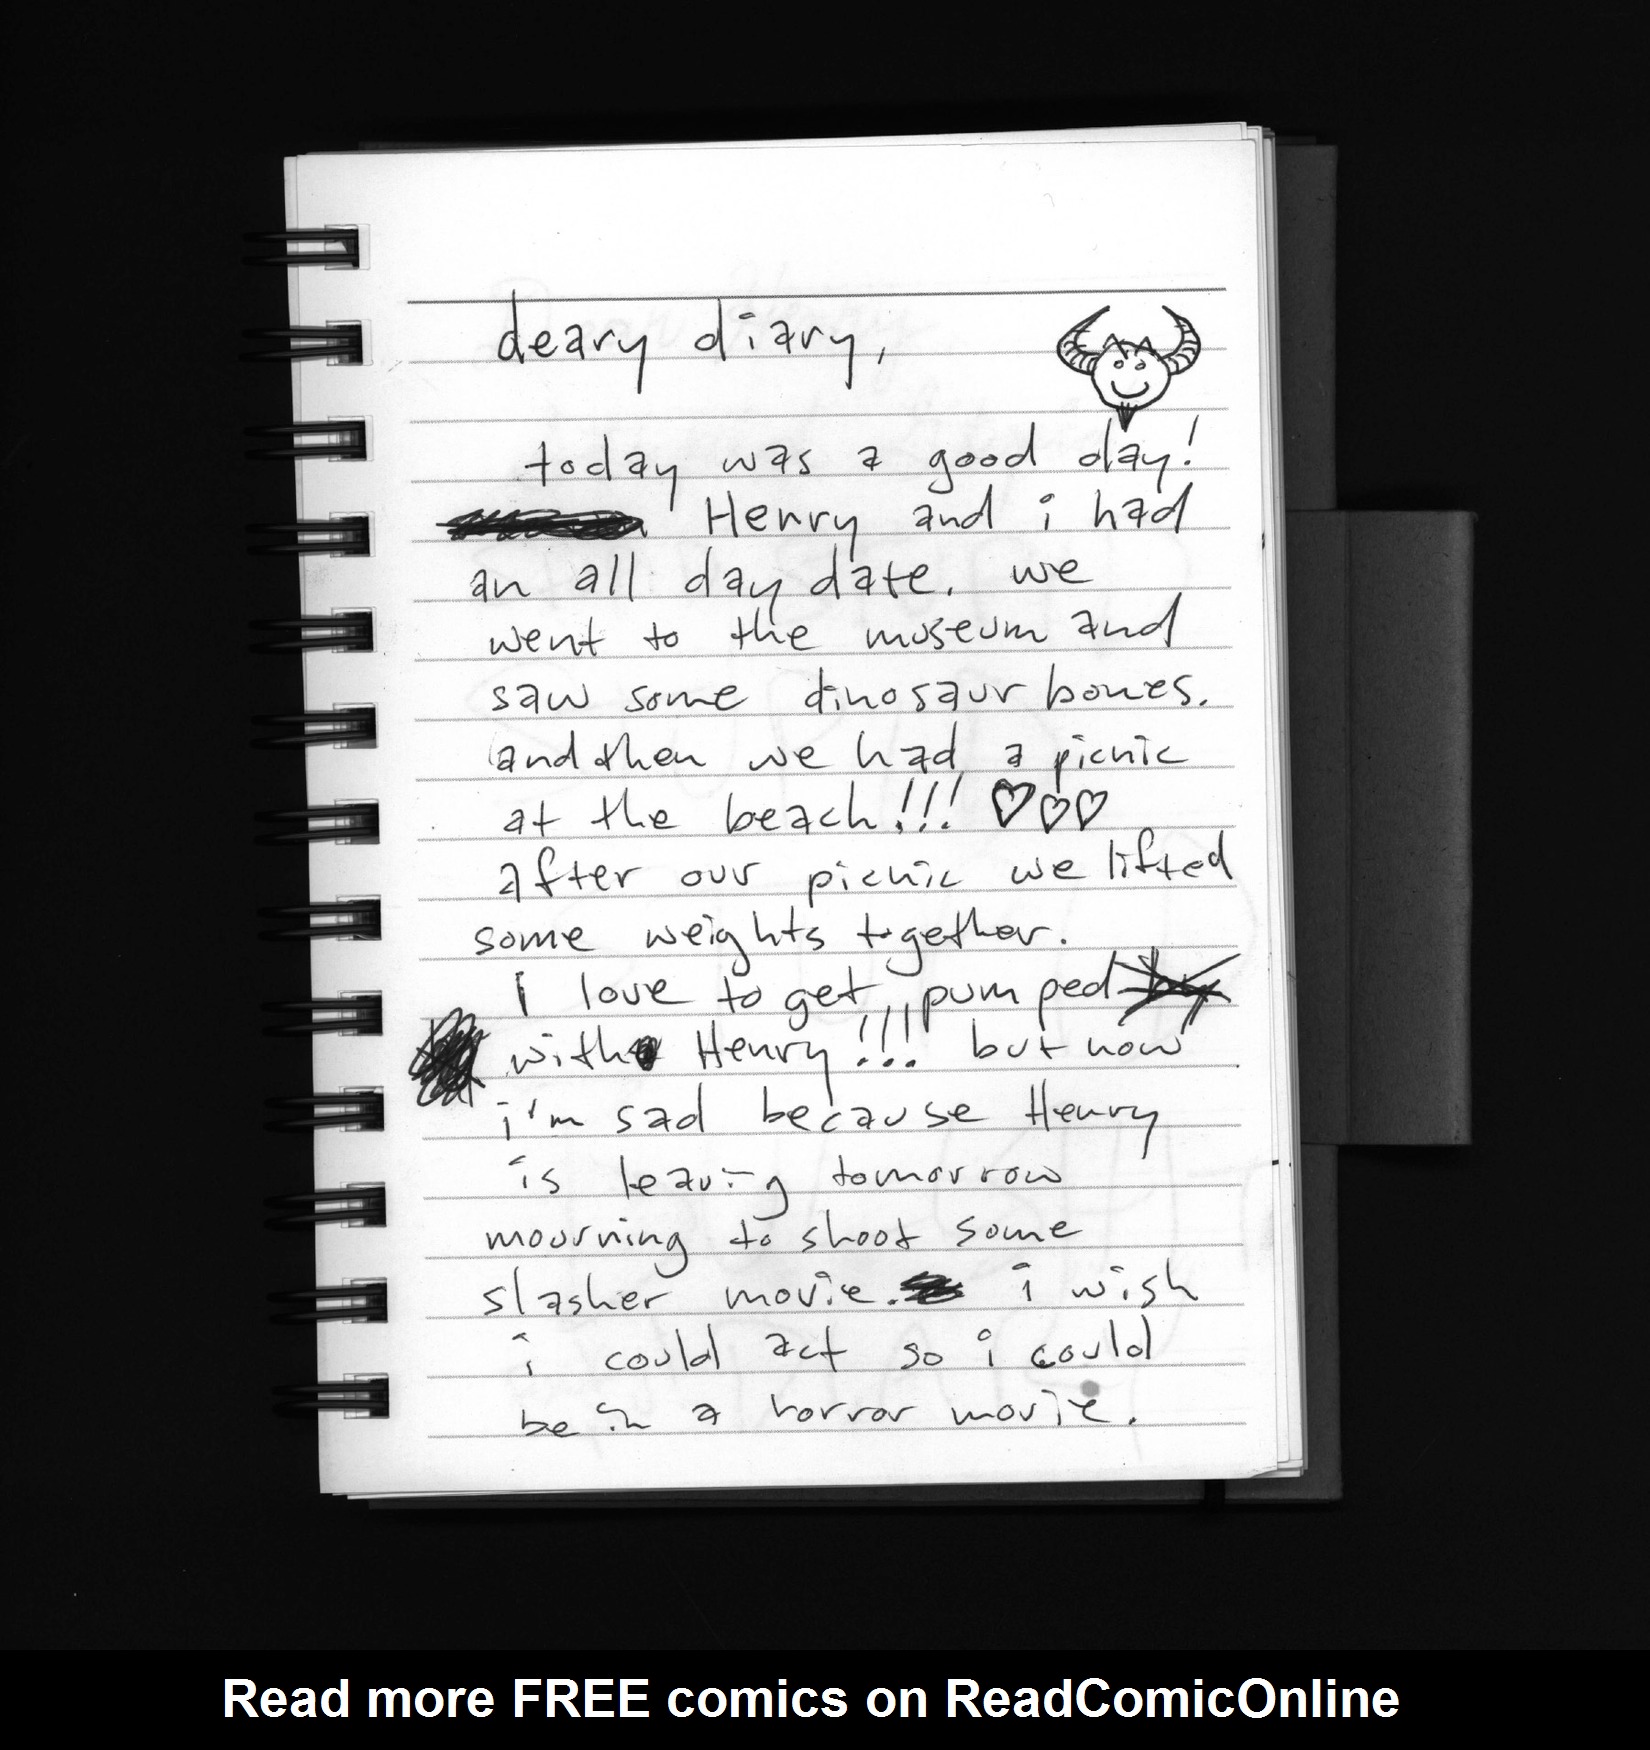 deary diary,
today was a good day!
Henry and i had
an all day date. we
went to the museum and
saw some dinosaur bones.
and then we had a picnic
at the beach!!! ♡♡♡
after our picnic we lifted
some weights together.
I love to get pumped
with Henry!!! but now
i'm sad because Henry
is leaving tomorrow
mourning to shoot some
slasher movie. i wish
i could act so i could
be in a horror movie.
Read more FREE comics on ReadComicOnline